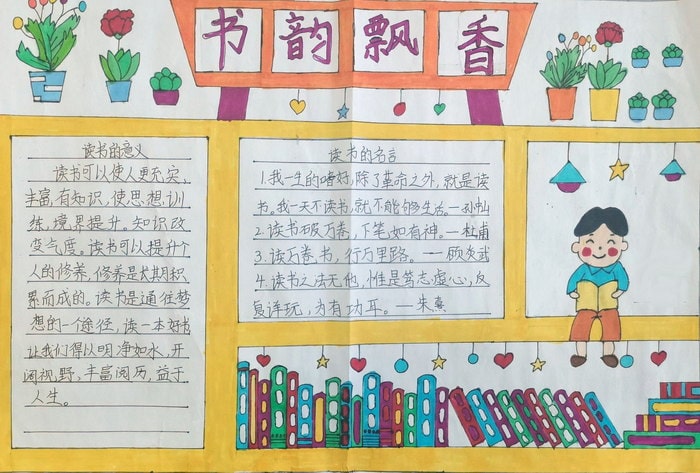 书韵飘香
读书的意义
读书可以使人更充实,
丰富有知识,使思想训
练,境界提升。知识改
变气度。读书可以提升个
人的修养,修养是长期积
累而成的。读书是通往梦
想的一个途径,读一本好书
让我们得以明净如水,开
阔视野,丰富阅历,益于
人生。
读书的名言
1.我一生的嗜好,除了革命之外,就是读
书。我一天不读书,就不能够生活。—孙中山
2.读书破万卷,下笔如有神。—杜甫
3.读万卷书,行万里路。——顾炎武
4.读书之法无他,惟是笃志虚心,反
复详玩,为有功耳。—朱熹